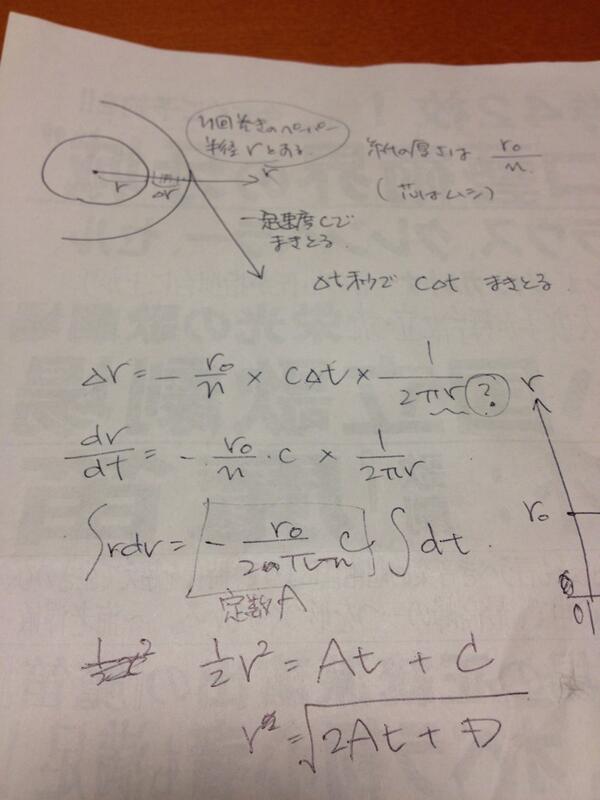 n回巻きのペーパー
半径rとする
r
Δr
r
紙の厚さは r₀/n
(芯はムシ)
一定速度Cで
まきとる
Δt秒で CΔt まきとる
Δr = - r₀/n × CΔt × 1/2πr ?
dr/dt = - r₀/n · C × 1/2πr
∫rdr = - r₀/2πn C ∫dt
定数A
1/2 r² = At + C
r = √2At + D
r
r₀
0